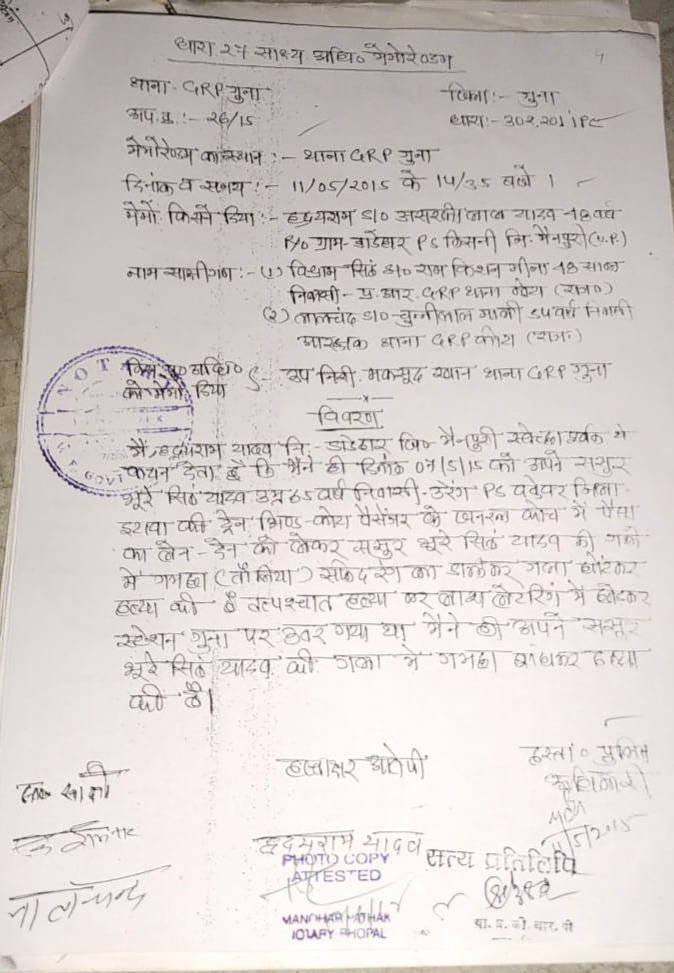 धारा 27 साक्ष्य अधि० मेमोरेण्डम
4
थाना- GRP गुना
जिला:- गुना
अप.क्र.:- 26/15
धारा:- 302,201 IPC
मेमोरेण्डम का स्थान :- थाना GRP गुना
दिनांक व समय :- 11/05/2015 के 14/35 बजे ।
मेमो किसने दिया :- हृदयराम S/O असरफी लाल यादव 48 वर्ष
R/O ग्राम- डाडेहार PS किसनी जि. मैनपुरी (U.P.)
नाम साक्षीगण :- (1) विश्राम सिंह S/O राम किशन मीना 48 साल
निवासी- प्र.आर. GRP थाना कोटा (राज०)
(2) लालचंद S/O चुन्नीलाल माली 54 वर्ष निवासी
आरक्षक थाना GRP कोटा (राज.)
किस पु० अधि०
को मेमो दिया
:- उप निरी. मकसूद खान थाना GRP गुना
विवरण
मैं हृदयराम यादव नि- डाडेहार जि० मैनपुरी स्वेच्छा पूर्वक मे
कथन देता हूँ कि मैंने ही दिनांक 07/5/15 को अपने ससुर
भूरे सिंह यादव उम्र 65 वर्ष निवासी- उरंग PS बकेवर जिला
इटावा की ट्रेन भिण्ड-कोटा पैसेंजर के जनरल कोच में पैसा
का लेन-देन को लेकर ससुर भूरे सिंह यादव की गले
में गमछा (तौलिया) सफेद रंग का डालकर गला घोंटकर
हत्या की है तत्पश्चात हत्या कर लाश लेटरिंग में छोडकर
स्टेशन गुना पर उतर गया था मैंने ही अपने ससुर
भूरे सिंह यादव की गला मे गमछा बांधकर हत्या
की है।
हस्ताक्षर आरोपी
हस्ता० पुलिस
अधिकारी
हृदयराम यादव
सत्य प्रतिलिपि
PHOTO COPY
ATTESTED
लालचन्द
MANOHAR PATHAK
NOTARY BHOPAL
था. प्र. जी. आर. पी
NOT
GOVT